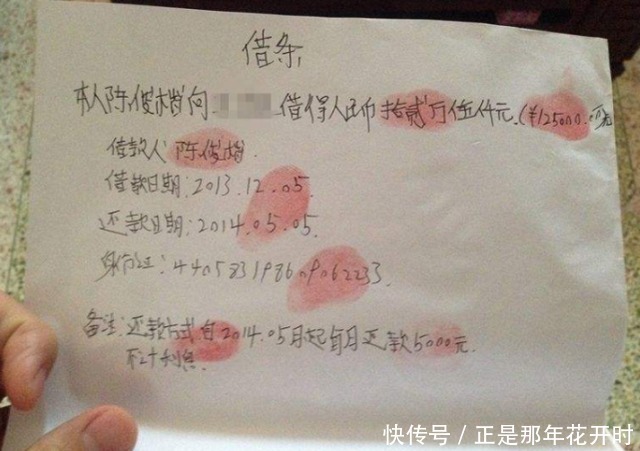 借条
本人陈俊楷向 借得人民币拾贰万伍仟元.(¥125000.
借款人:陈俊楷.
借款日期:2013.12.05.
还款日期:2014.05.05.
身份证:440583198609062233.
备注:还款方式自2014.05月起每月还款5000元.
不计利息.
快传号 / 正是那年花开时